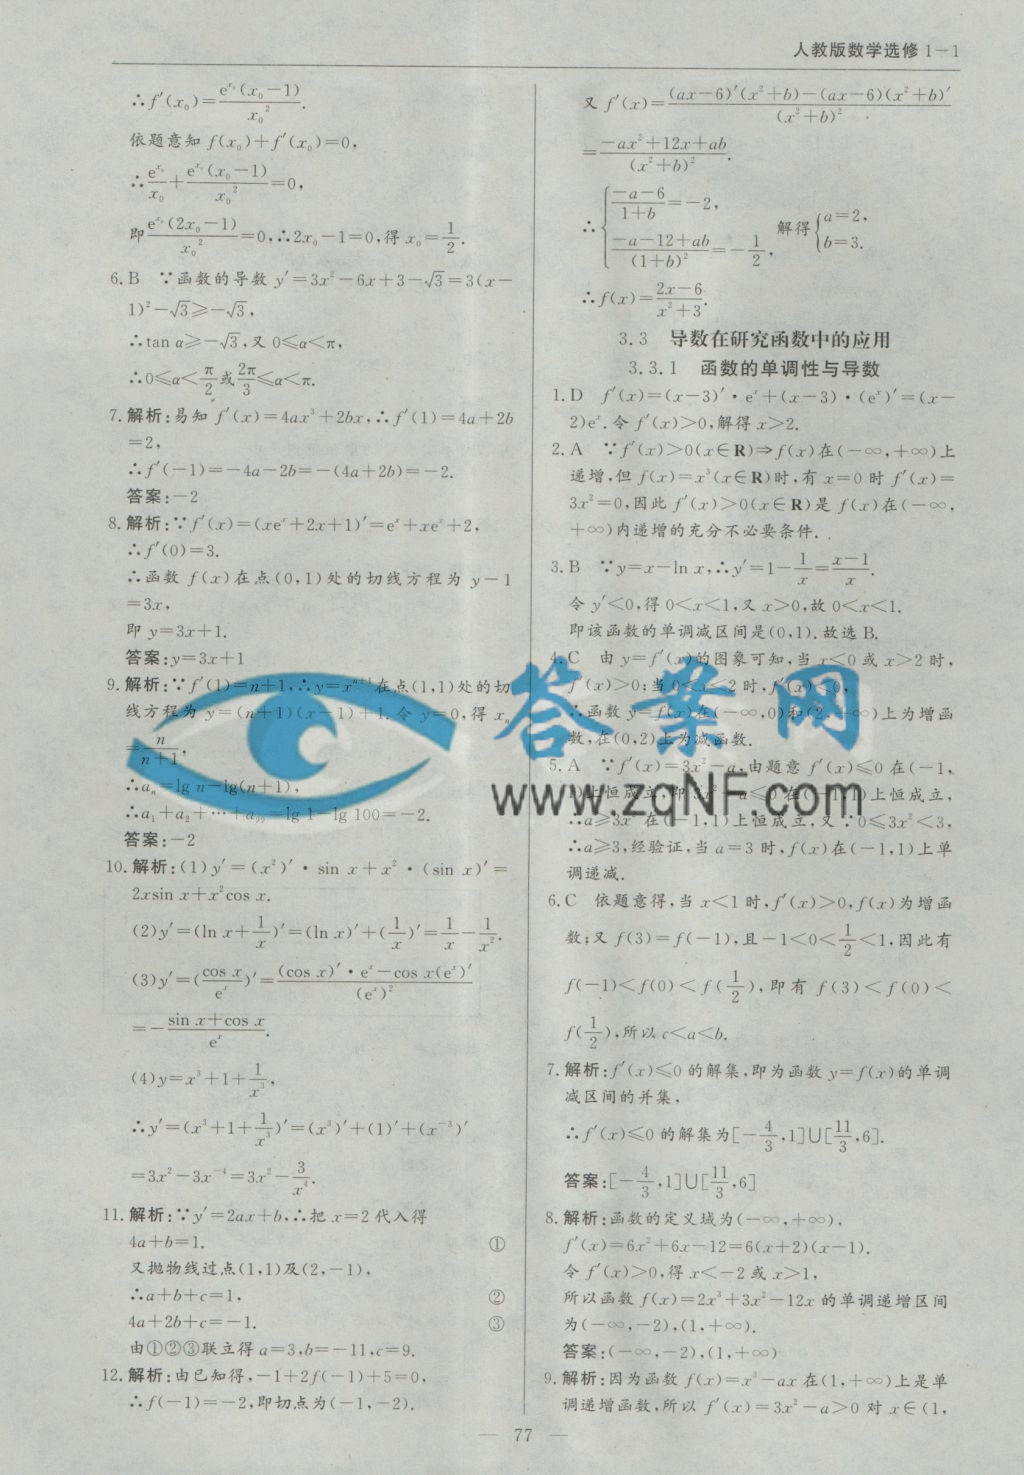 人教版数学选修 1-1
∴f′(x₀)=e^{x₀}(x₀-1)/x₀².
依题意知 f(x₀)+f′(x₀)=0,
∴e^{x₀}/x₀+e^{x₀}(x₀-1)/x₀²=0,
即e^{x₀}(2x₀-1)/x₀²=0,∴2x₀-1=0,得 x₀=1/2.
6.B ∵函数的导数 y′=3x²-6x+3-√3=3(x-
1)²-√3≥-√3,
∴tan α≥-√3,又 0≤α<π,
∴0≤α<π/2或2π/3≤α<π.
7.解析:易知 f′(x)=4ax³+2bx,∴f′(1)=4a+2b
=2,
∴f′(-1)=-4a-2b=-(4a+2b)=-2.
答案:-2
8.解析:∵f′(x)=(xeˣ+2x+1)′=eˣ+xeˣ+2,
∴f′(0)=3.
∴函数 f(x)在点(0,1)处的切线方程为 y-1
=3x,
即 y=3x+1.
答案:y=3x+1
9.解析:∵f′(1)=n+1,∴y=xⁿ⁺¹在点(1,1)处的切
线方程为 y=(n+1)(x-1)+1.令 y=0,得 xₙ
=n/(n+1),
∴aₙ=lg n-lg(n+1),
∴a₁+a₂+…+a₉₉=lg 1-lg 100=-2.
答案:-2
10.解析:(1)y′=(x²)′·sin x+x²·(sin x)′=
2xsin x+x²cos x.
(2)y′=(ln x+1/x)′=(ln x)′+(1/x)′=1/x-1/x².
(3)y′=(cos x/eˣ)′=(cos x)′·eˣ-cos x(eˣ)′/(eˣ)²
=-sin x+cos x/eˣ.
(4)y=x³+1+1/x³,
∴y′=(x³+1+1/x³)′=(x³)′+(1)′+(x⁻³)′
=3x²-3x⁻⁴=3x²-3/x⁴.
11.解析:∵y′=2ax+b,∴把 x=2 代入得
4a+b=1. ①
又抛物线过点(1,1)及(2,-1),
∴a+b+c=1, ②
4a+2b+c=-1. ③
由①②③联立得 a=3,b=-11,c=9.
12.解析:由已知得,-1+2f(-1)+5=0,
∴f(-1)=-2,即切点为(-1,-2).
又 f′(x)=(ax-6)′(x²+b)-(ax-6)(x²+b)′/(x²+b)²
=-ax²+12x+ab/(x²+b)².
∴{-a-6/1+b=-2, -a-12+ab/(1+b)²=-1/2, 解得{a=2, b=3.
∴f(x)=2x-6/x²+3.
3.3 导数在研究函数中的应用
3.3.1 函数的单调性与导数
1.D f′(x)=(x-3)′·eˣ+(x-3)·(eˣ)′=(x-
2)eˣ.令 f′(x)>0,解得 x>2.
2.A ∵f′(x)>0(x∈R)⇒f(x)在(-∞,+∞)上
递增,但 f(x)=x³(x∈R)时,有 x=0 时 f′(x)=
3x²=0,因此 f′(x)>0(x∈R)是 f(x)在(-∞,
+∞)内递增的充分不必要条件.
3.B ∵y=x-ln x,∴y′=1-1/x=x-1/x.
令 y′<0,得 0<x<1,又 x>0,故 0<x<1.
即该函数的单调减区间是(0,1).故选 B.
4.C 由 y=f′(x)的图象可知,当 x<0 或 x>2 时,
f′(x)>0;当 0<x<2 时,f′(x)<0,
∴函数 y=f(x)在(-∞,0)和(2,+∞)上为增函
数,在(0,2)上为减函数.
5.A ∵f′(x)=3x²-a,由题意 f′(x)≤0 在(-1,
1)上恒成立,即 3x²-a≤0 在(-1,1)上恒成立,
∴a≥3x² 在(-1,1)上恒成立,又∵0≤3x²<3,
∴a≥3,经验证,当 a=3 时,f(x)在(-1,1)上单
调递减.
6.C 依题意得,当 x<1 时,f′(x)>0,f(x)为增函
数;又 f(3)=f(-1),且-1<0<1/2<1,因此有
f(-1)<f(0)<f(1/2),即有 f(3)<f(0)<
f(1/2),所以 c<a<b.
7.解析:f′(x)≤0 的解集,即为函数 y=f(x)的单调
减区间的并集,
∴f′(x)≤0 的解集为[-4/3,1]∪[11/3,6].
答案:[-4/3,1]∪[11/3,6]
8.解析:函数的定义域为(-∞,+∞),
f′(x)=6x²+6x-12=6(x+2)(x-1).
令 f′(x)>0,得 x<-2 或 x>1,
所以函数 f(x)=2x³+3x²-12x 的单调递增区间
为(-∞,-2),(1,+∞).
答案:(-∞,-2),(1,+∞)
9.解析:因为函数 f(x)=x³-ax 在(1,+∞)上是单
调递增函数,所以 f′(x)=3x²-a>0 对 x∈(1,
答案网
www.zqNF.com
— 77 —